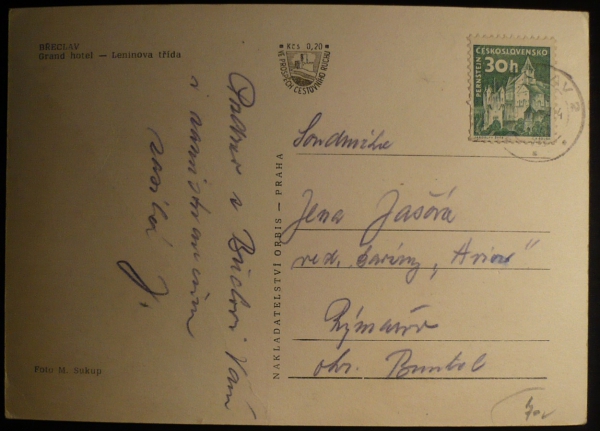 BŘECLAV
Grand hotel — Leninova třída
Kčs 0,20
VE PROSPĚCH CESTOVNÍHO RUCHU
ČESKOSLOVENSKO
PERNŠTEJN
30h
Pozdrav z Břeclavi Vám
i
zasílá J.
NAKLADATELSTVÍ ORBIS — PRAHA
Soudružka
Jena Jašová
ved. kavárny „Avion“
Rýmařov
okr. Bruntál
Foto M. Sukup